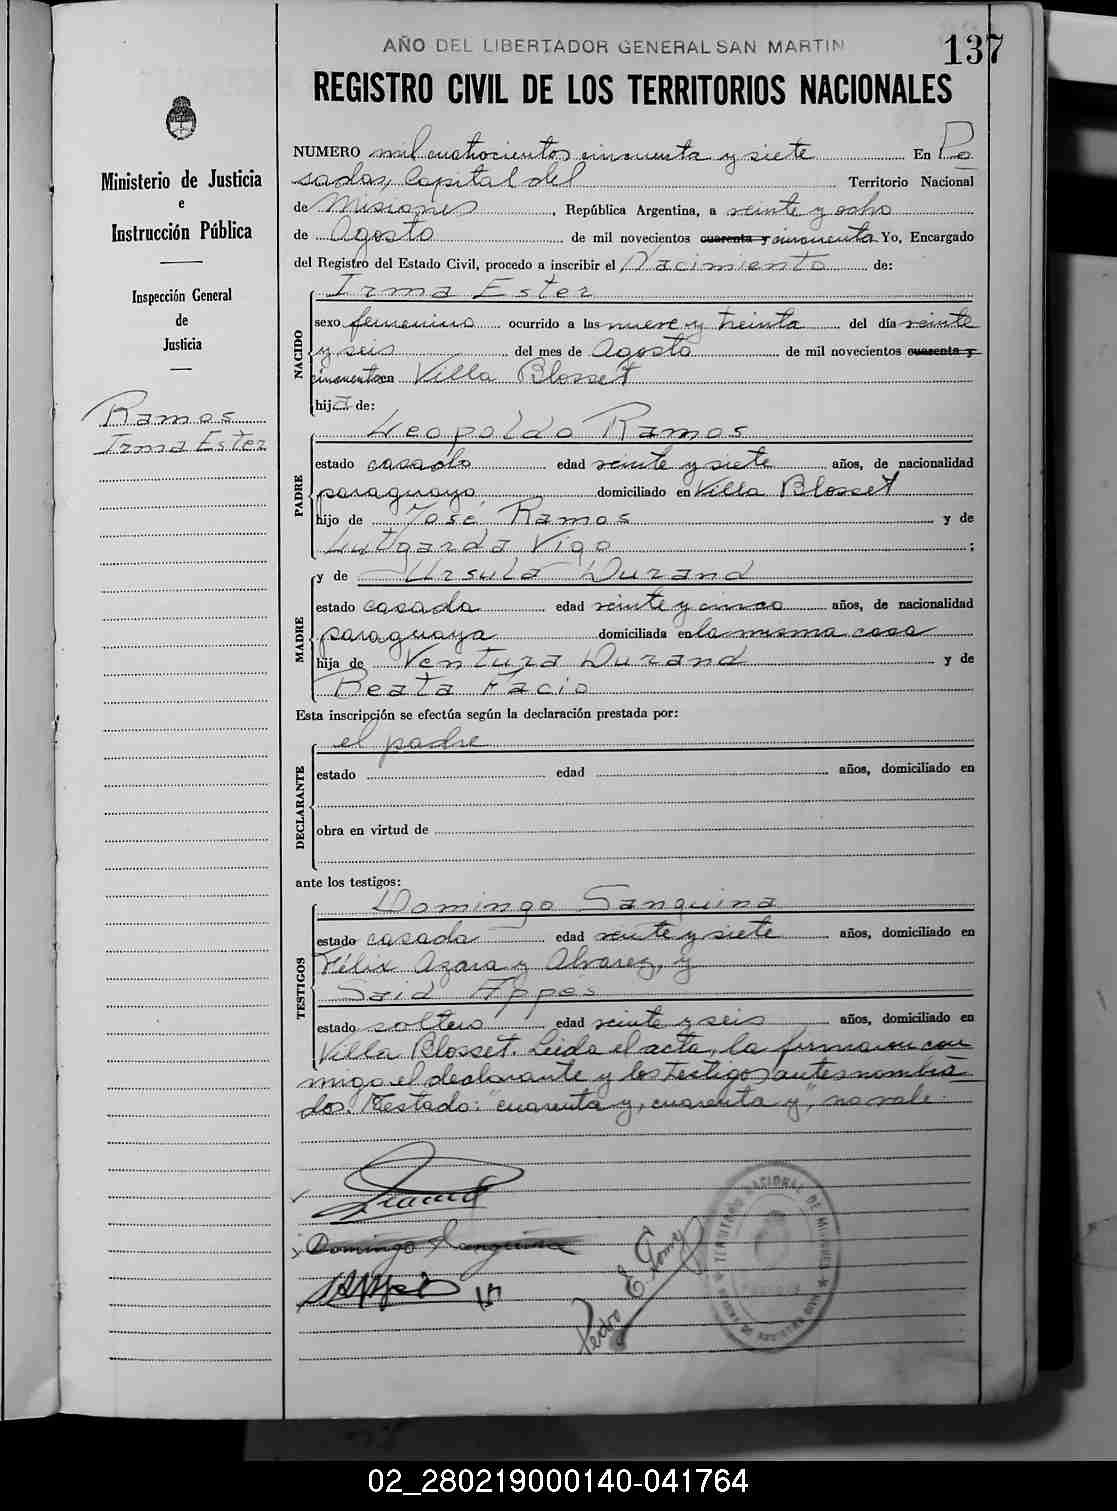 AÑO DEL LIBERTADOR GENERAL SAN MARTIN
137
REGISTRO CIVIL DE LOS TERRITORIOS NACIONALES
Ministerio de Justicia
e
Instrucción Pública
Inspección General
de
Justicia
Ramos
Irma Ester
NUMERO mil cuatrocientos cincuenta y siete En Po
sadas, Capital del Territorio Nacional
de Misiones, República Argentina, a veinte y ocho
de Agosto de mil novecientos cuarenta y cincuenta Yo, Encargado
del Registro del Estado Civil, procedo a inscribir el Nacimiento de:
NACIDO
Irma Ester
sexo femenino ocurrido a las nueve y treinta del día veinte
y seis del mes de Agosto de mil novecientos cuarenta y
cincuenta en Villa Blosset
hija de:
PADRE
Leopoldo Ramos
estado casado edad veinte y siete años, de nacionalidad
paraguayo, domiciliado en Villa Blosset
hijo de José Ramos y de
Lutgarda Vigo ;
MADRE
y de Ursula Durand
estado casada edad veinte y cinco años, de nacionalidad
paraguaya domiciliada en la misma casa
hija de Ventura Durand y de
Beata Facio
Esta inscripción se efectúa según la declaración prestada por:
DECLARANTE
el padre
estado edad años, domiciliado en
obra en virtud de
ante los testigos:
TESTIGOS
Domingo Sanquina
estado casado edad veinte y siete años, domiciliado en
Félix Azara y Alvarez, y
Said Appes
estado soltero edad veinte y seis años, domiciliado en
Villa Blosset. Leida el acta, la firmaron con
migo el declarante y los testigos antes nombra
dos. Testado: "cuarenta y, cuarenta y", no vale.
Domingo Sanquina
Pedro E. Gomez
TERRITORIO NACIONAL DE MISIONES
02_280219000140-041764